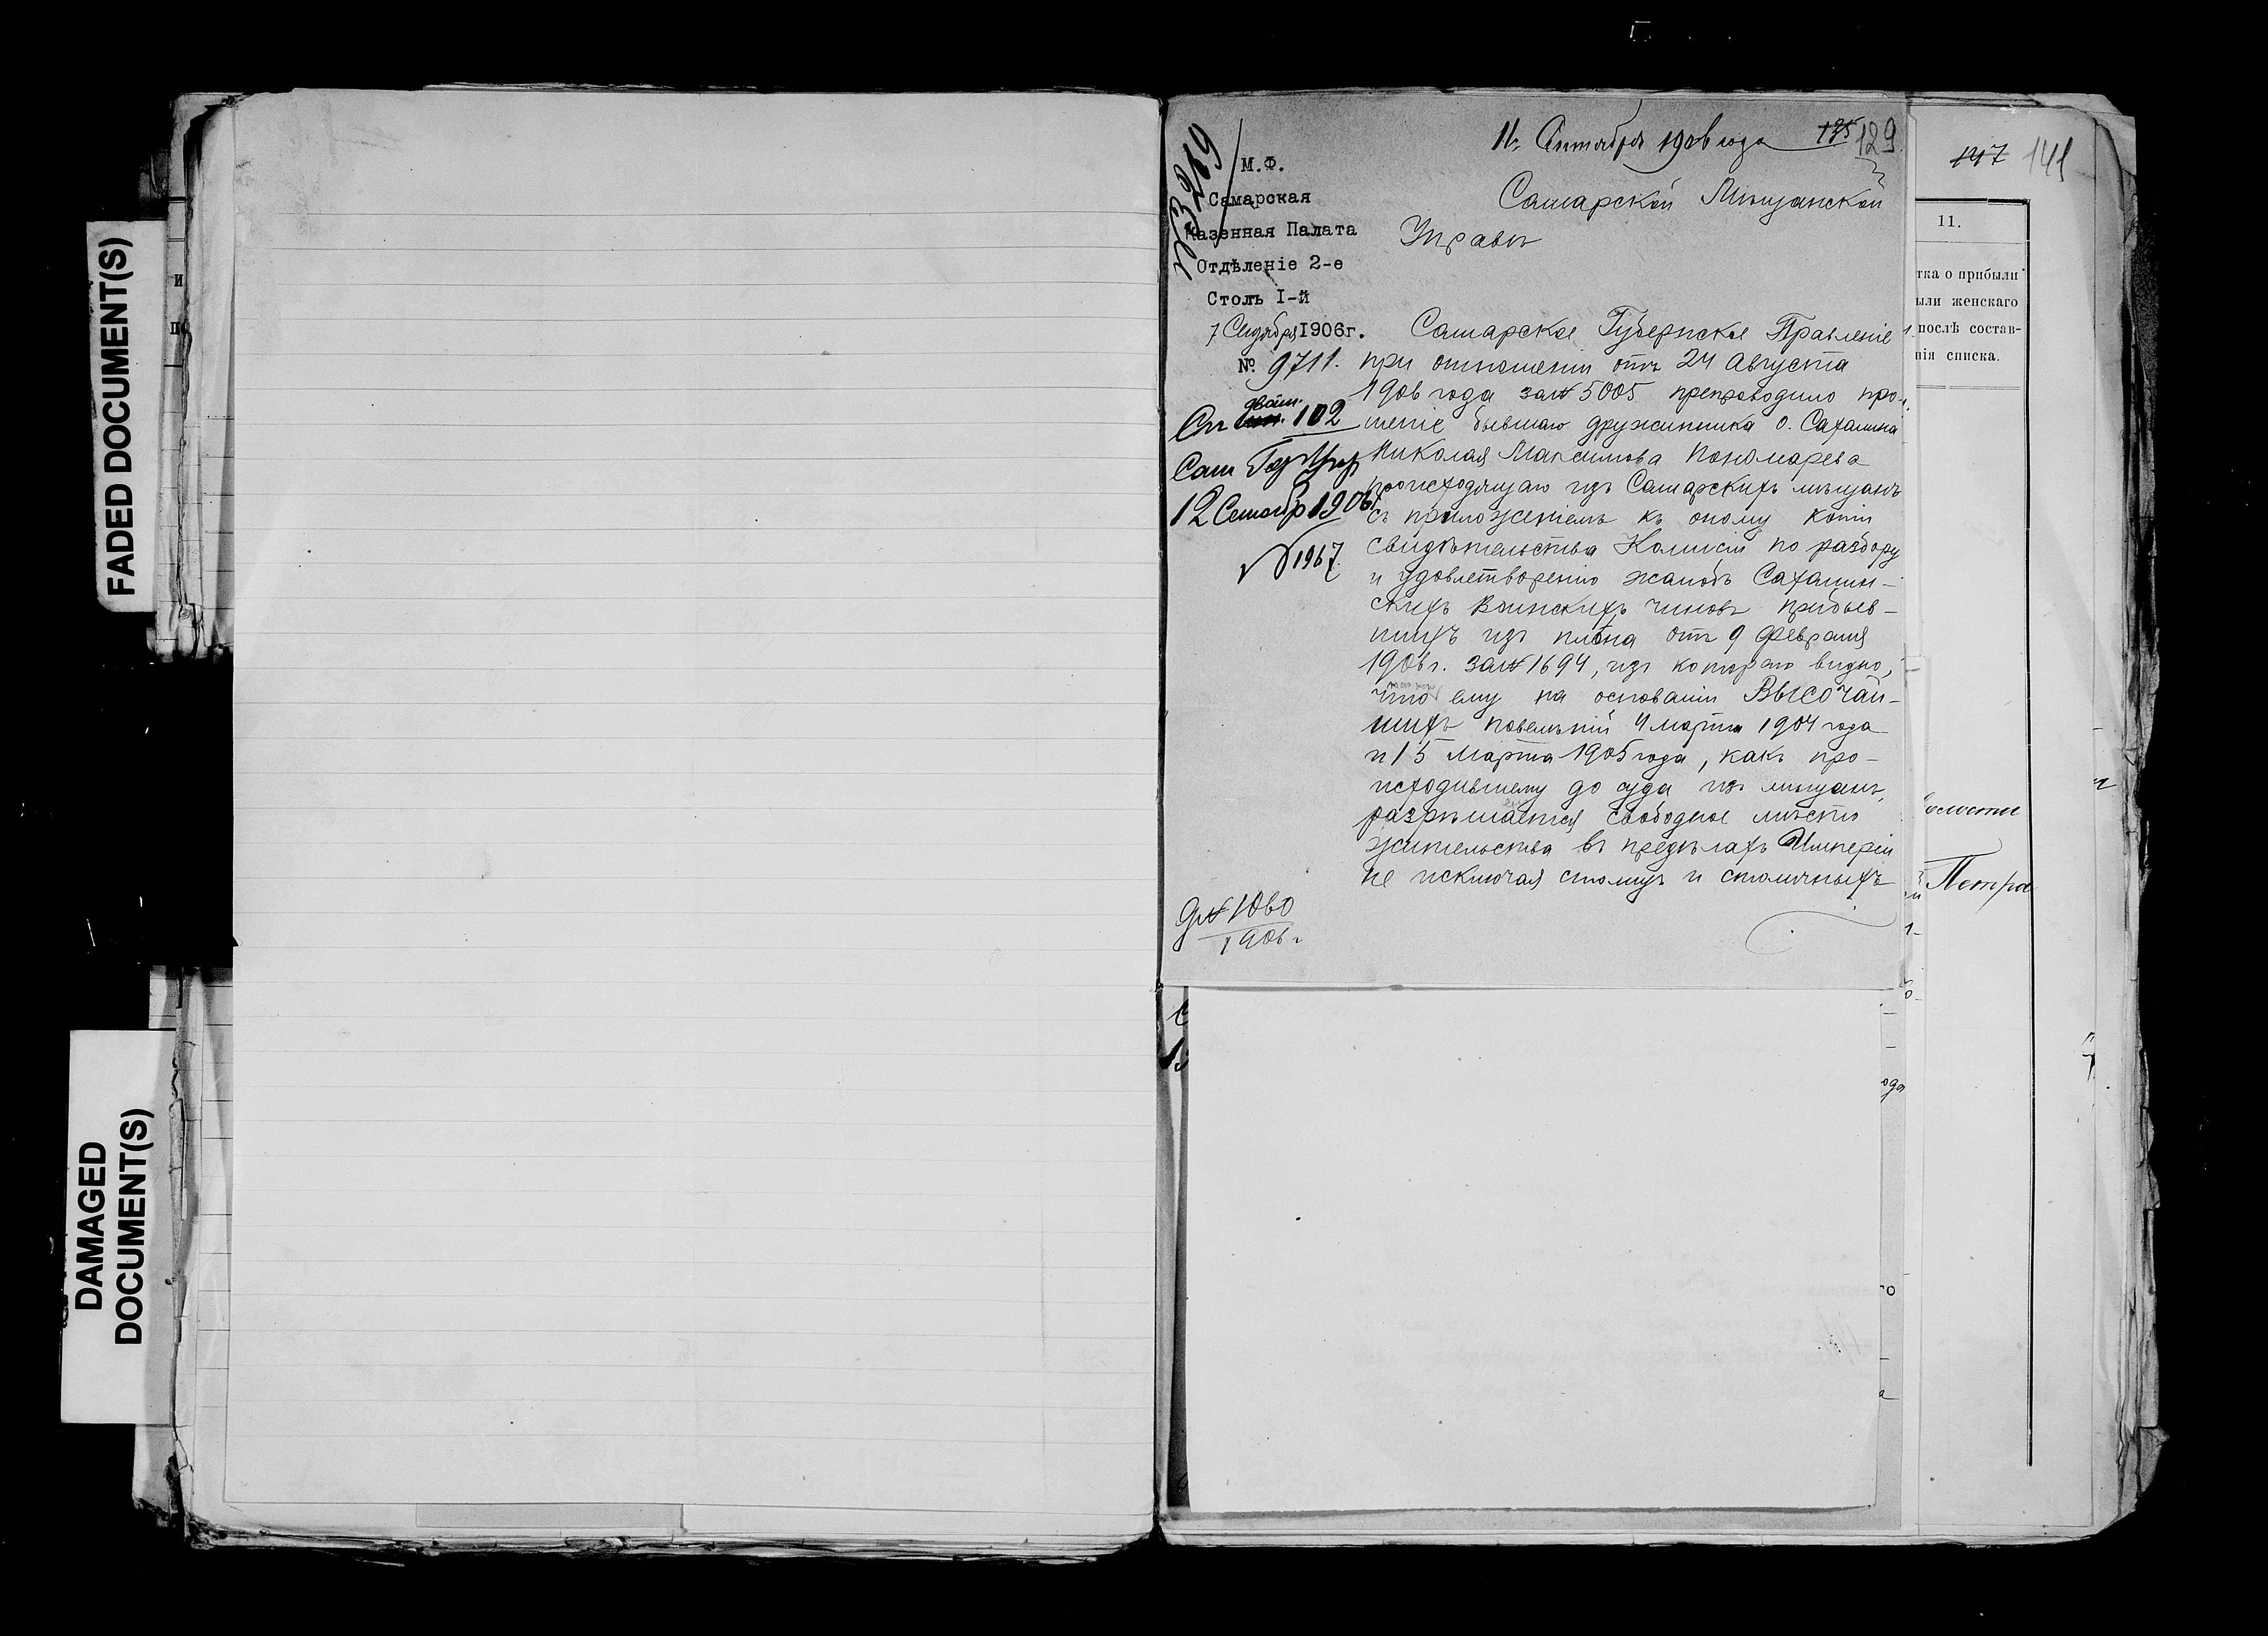 FADED DOCUMENT(S)
DAMAGED
DOCUMENT(S)
11. Сентября 1906 года
135 129
№ 3219
М.Ф.
Самарская
Казенная Палата
Отдѣленіе 2-е
Столъ I-й
7 Сентября 1906г.
№ 9711.
102
12 Сентябр 1906г
№ 1967
Д№ 1060
1906 г
Самарской Мѣщанской
Управѣ
Самарское Губернское Правленіе
при отношеніи отъ 24 Августа
1906 года за № 5005 препроводило про-
шеніе бывшаго дружинника о. Сахалина
Николая Максимова Пономарева
происходящаго изъ Самарскихъ мѣщанъ
съ приложеніемъ къ оному копіи
свидѣтельства Комисіи по разбору
и удовлетворенію жалобъ Сахалин-
скихъ Воинскихъ чиновъ прибыв-
шихъ изъ плѣна отъ 9 февраля
1906 г. за № 1694, изъ котораго видно,
что ему на основаніи ВЫСОЧАЙ-
ШИХЪ повелѣній 4 марта 1904 года
и 15 марта 1905 года, какъ про-
исходившему до суда изъ мѣщанъ,
разрѣшается свободное мѣсто
жительства въ предѣлахъ Имперіи
не исключая столицъ и столичныхъ
147 141
11.
тка о прибыли
ыли женскаго
послѣ состав-
нія списка.
Петра